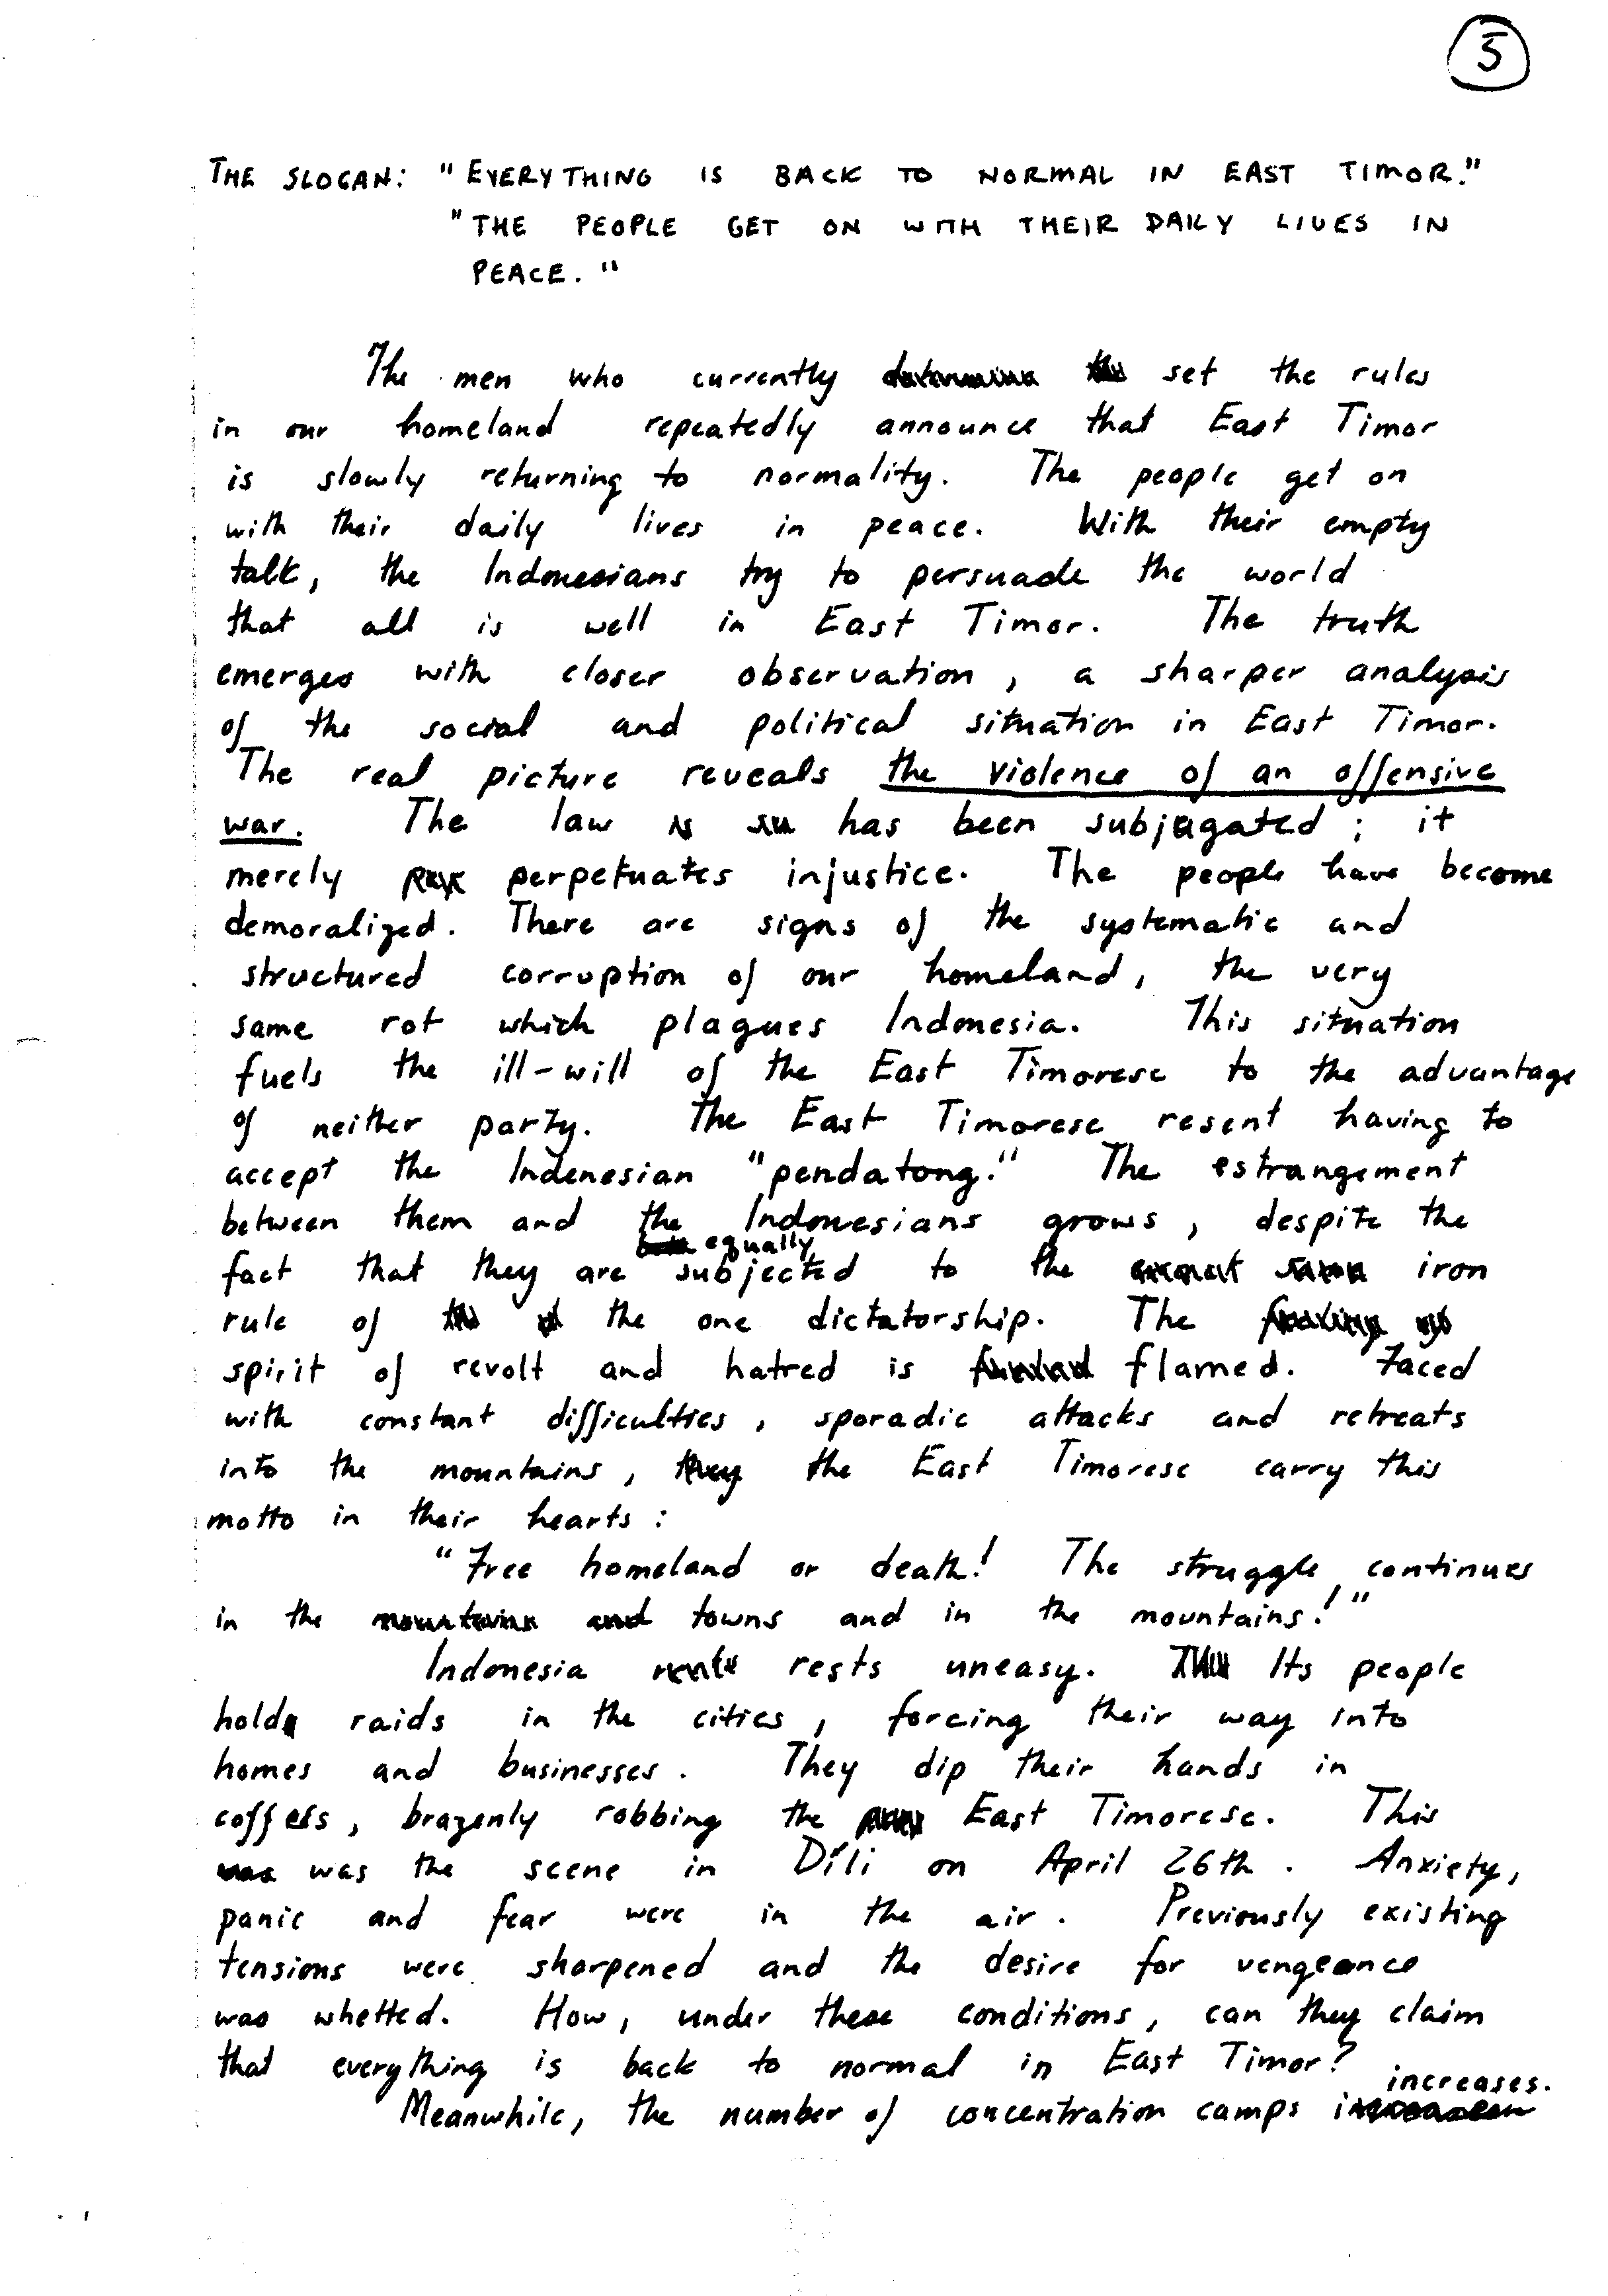 5
THE SLOGAN: "EVERYTHING IS BACK TO NORMAL IN EAST TIMOR."
"THE PEOPLE GET ON WITH THEIR DAILY LIVES IN
PEACE."
The men who currently set the rules
in our homeland repeatedly announce that East Timor
is slowly returning to normality. The people get on
with their daily lives in peace. With their empty
talk, the Indonesians try to persuade the world
that all is well in East Timor. The truth
emerges with closer observation, a sharper analysis
of the social and political situation in East Timor.
The real picture reveals the violence of an offensive
war. The law has been subjugated; it
merely perpetuates injustice. The people have become
demoralized. There are signs of the systematic and
structured corruption of our homeland, the very
same rot which plagues Indonesia. This situation
fuels the ill-will of the East Timorese to the advantage
of neither party. The East Timorese resent having to
accept the Indenesian "pendatong." The estrangement
between them and the Indonesians grows, despite the
equally
fact that they are subjected to the iron
rule of the one dictatorship. The
spirit of revolt and hatred is flamed. Faced
with constant difficulties, sporadic attacks and retreats
into the mountains, the East Timorese carry this
motto in their hearts:
"Free homeland or death! The struggle continues
in the towns and in the mountains!"
Indonesia rests uneasy. Its people
hold raids in the cities, forcing their way into
homes and businesses. They dip their hands in
coffers, brazenly robbing the East Timorese. This
was the scene in Díli on April 26th. Anxiety,
panic and fear were in the air. Previously existing
tensions were sharpened and the desire for vengeance
was whetted. How, under these conditions, can they claim
that everything is back to normal in East Timor?
increases.
Meanwhile, the number of concentration camps